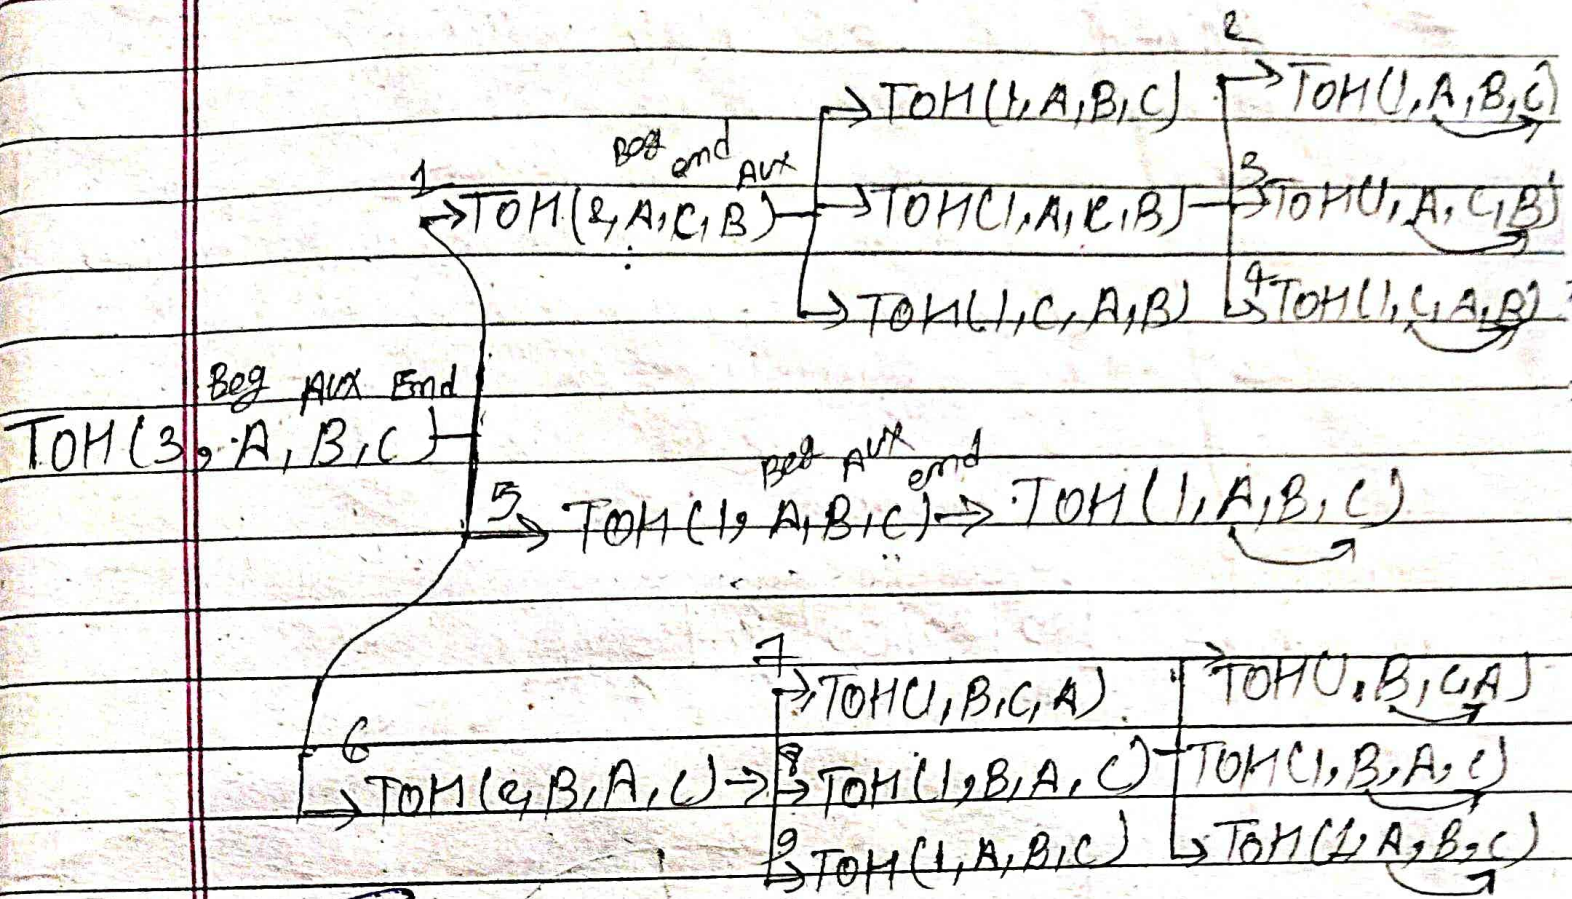 2
→TOH(1,A,B,C) →TOH(1,A,B,C)
Beg end Aux
1 →TOH(2,A,C,B) →TOH(1,A,C,B) 3 →TOH(1,A,C,B)
→TOH(1,C,A,B) 4 TOH(1,C,A,B)
Beg Aux End
TOH(3,A,B,C)
Beg Aux end
5 → TOH(1,A,B,C) → TOH(1,A,B,C)
7 →TOH(1,B,C,A) →TOH(1,B,C,A)
6 →TOH(2,B,A,C) → 8 →TOH(1,B,A,C) TOH(1,B,A,C)
9 →TOH(1,A,B,C) →TOH(1,A,B,C)